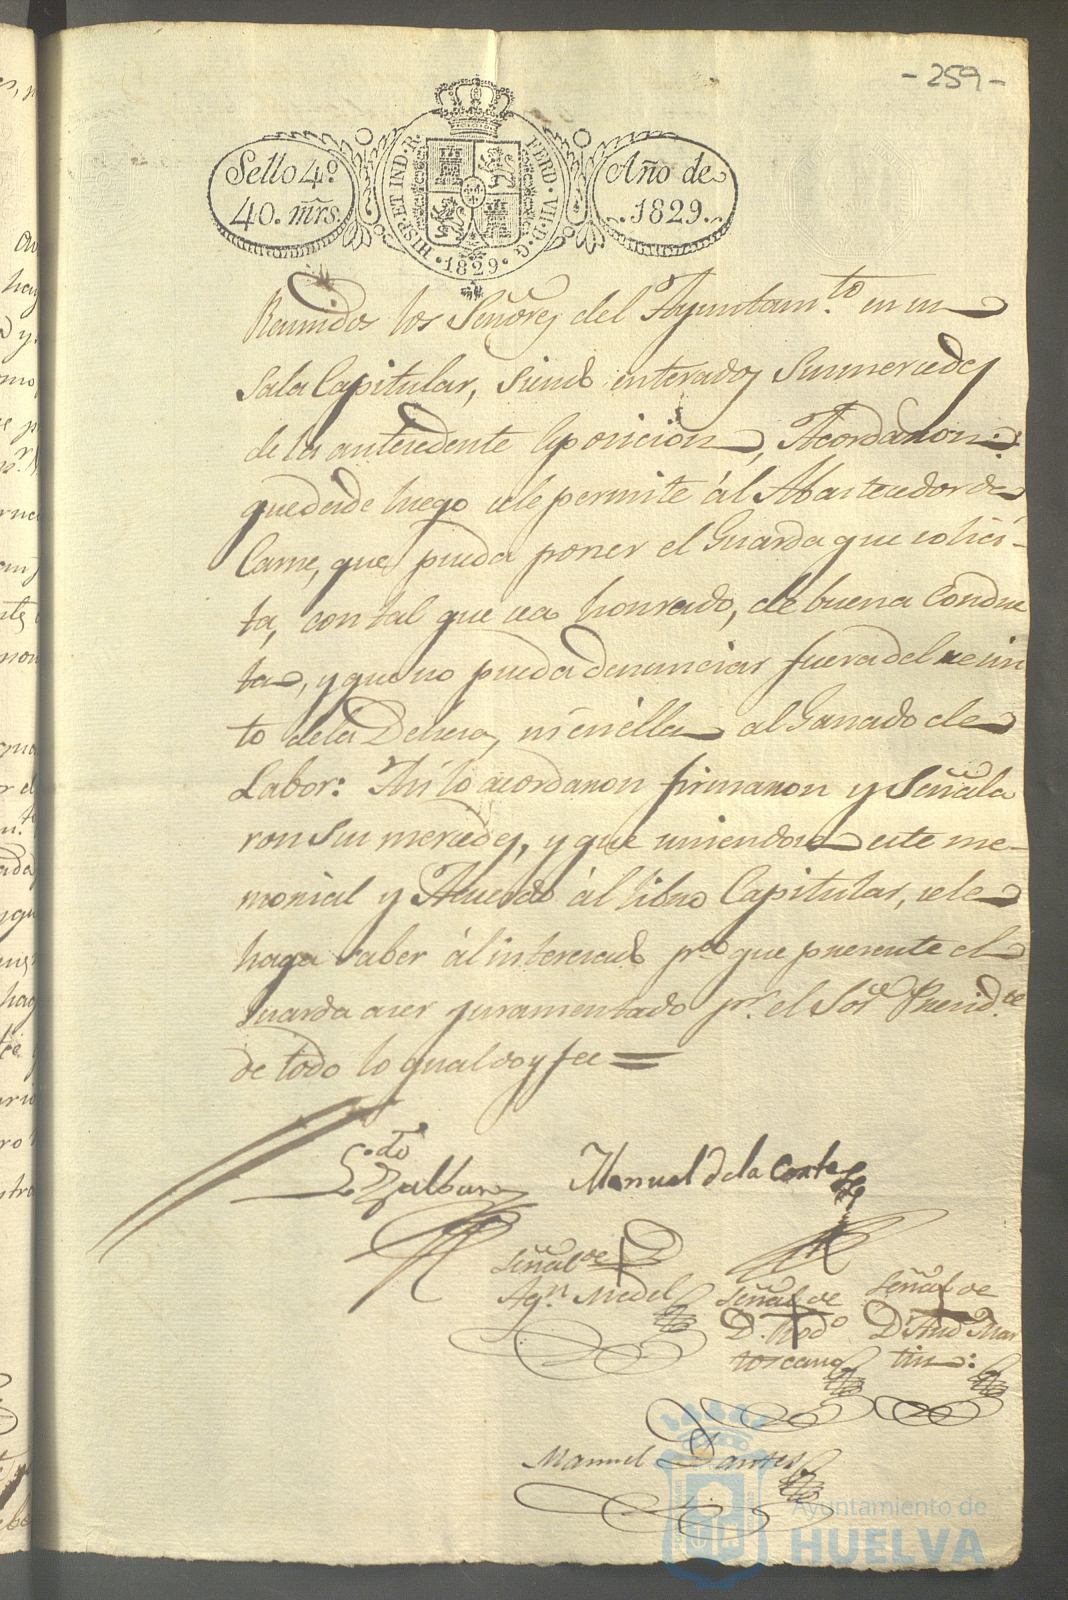 - 259 -
Sello 4º
40. mrs.
HISP. ET IND. R. FERD. VII. D. G. 1829.
Año de
1829.
Reunidos los Señores del Ayuntam.to en su
Sala Capitular, siendo enterados sus mercedes
de la antecedente esposicion, Acordaron:
que desde luego se le permite ál Abastecedor de
Carne, que pueda poner el Guarda que solici-
ta, con tal que sea honrado, de buena conduc
ta, y que no pueda denunciar fuera del recin
to de la Dehesa, ni en ella al Ganado de
Labor: Asi lo acordaron firmaron y Señala
ron sus mercedes, y que uniendose este me-
morial y Acuerdo ál libro Capitular, se le
haga saber ál interesado pa. que presente el
Guarda a ser juramentado pr. el Sor. Presid.te
de todo lo qual doy fee =
L.do
Manuel de la Corte
Señal de
Agn. Medel
Señal de
D. Rodo
toscano
Señal de
D. And. Mar
tin:
Manuel
Ayuntamiento de
HUELVA